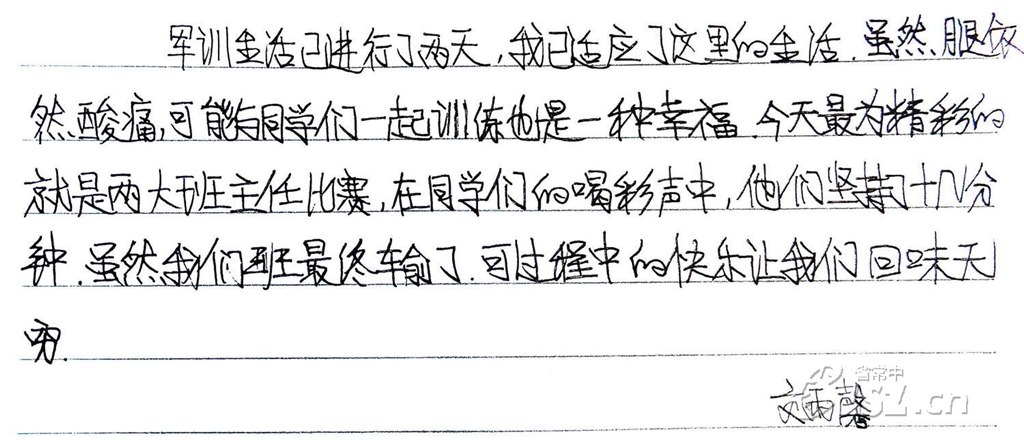 军训生活已进行了两天,我已适应了这里的生活.虽然腿依
然酸痛,可能与同学们一起训练也是一种幸福.今天最为精彩的
就是两大班主任比赛,在同学们的喝彩声中,他们坚持了十几分
钟.虽然我们班最终输了.可过程中的快乐让我们回味无
穷.
文雨馨
省常中
sz.cn